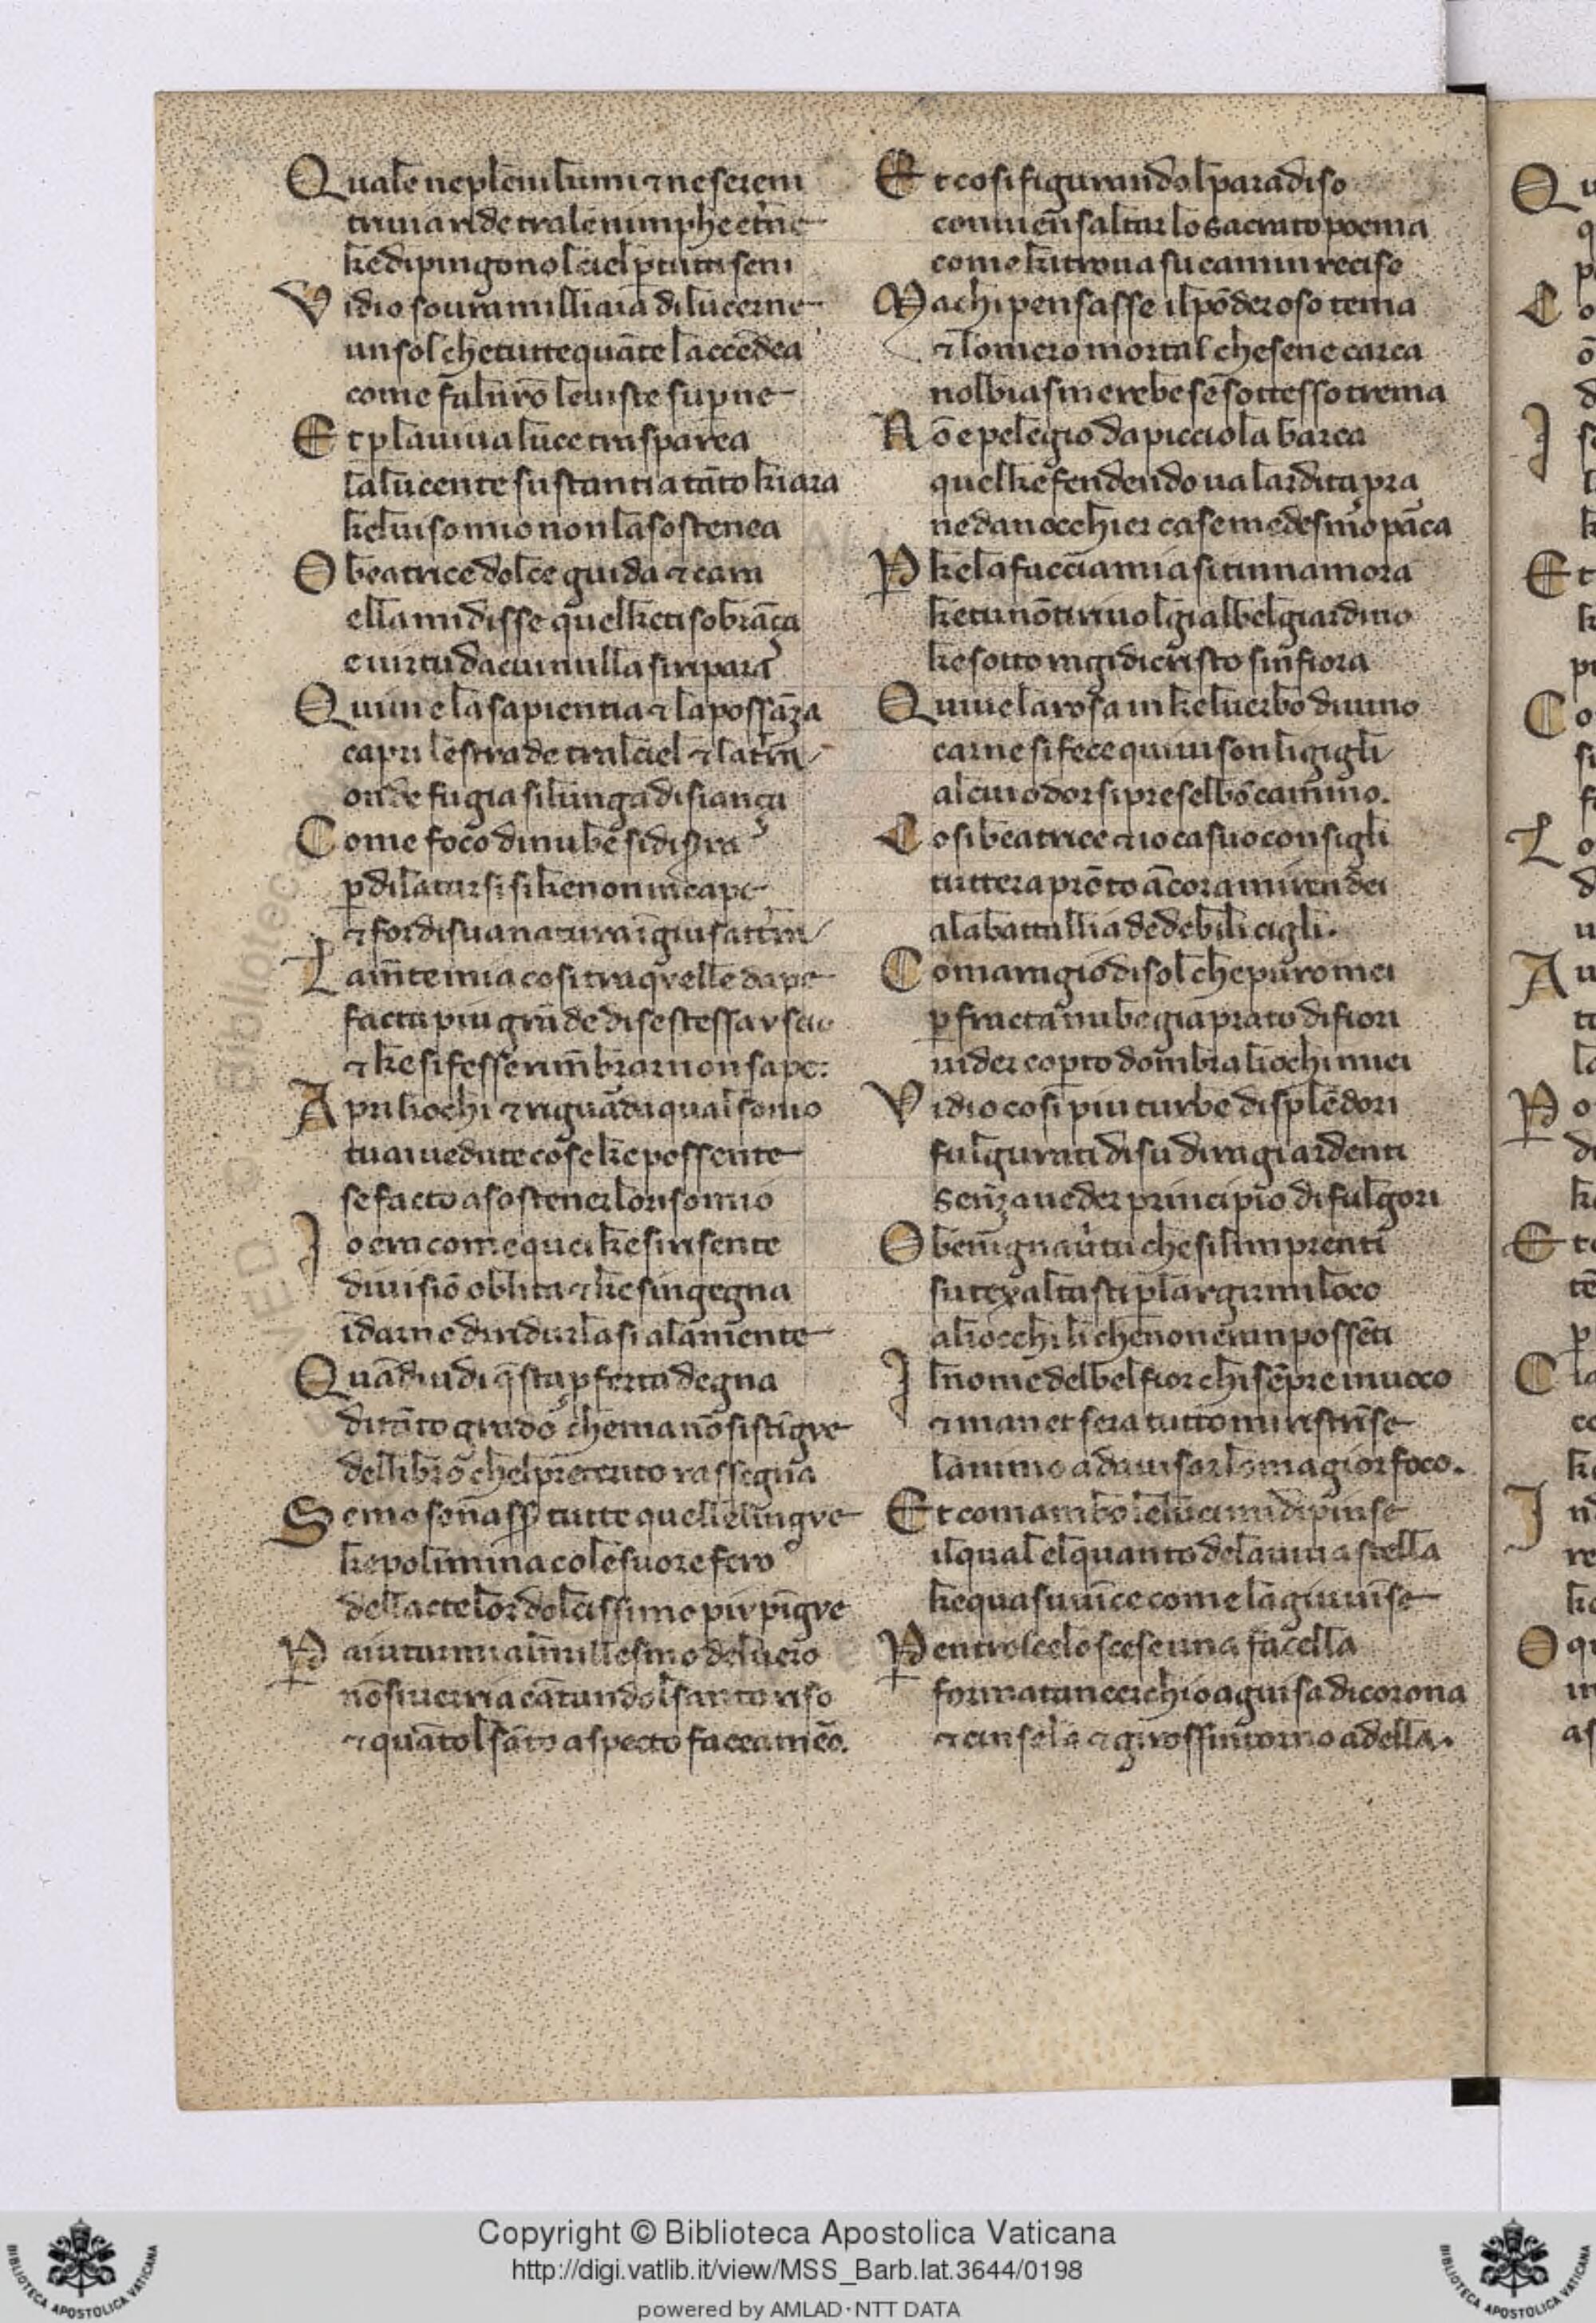 Quale ne pleniluni ⁊ ne sereni
triuia ride tra le nimphe et̄ne
ke dipingono lciel p tutti seni
Vidio soura milliaia di lucerne
un sol che tutte quāte laccēdea
come fal nr̄o le uiste sup̄ne
Et p la uiua luce trasparea
la lucente sustantia tāto kiara
kel uiso mio non la sostenea
O beatrice dolce guida ⁊ cara
ella mi disse quel ke ti sobrāça
e uirtu da cui nulla si ripara
Quiui e la sapientia ⁊ la possāza
capri le strade tral ciel ⁊ la t̄ra
onde fu gia si lunga disiança
Come foco di nube si disr̄a
p dilatarsi si ke non ui cape
⁊ for di sua natura ī giu satt̄ra
La m̄te mia cosi tra qvelle dape
facta piu grāde di se stessa vscio
⁊ ke si fesse rim̄brar non sape:
Apri liochi ⁊ riguāda qual sonio
tu ai uedute cose ke possente
se facto a sostener lo riso mio
Io era come quei ke si risente
di uisiō oblita ⁊ ke singegna
īdarno di ridurlasi ala mente
Quādiudi q̄sta pferta degna
di tāto grado che mai nō si stīgve
del libro chel preterito rassegna
Se mo sonass̄ tutte quelle lingve
ke polimnia co le suore fero
del lacte lor dolcissimo piv pīgve
P aiutarmi al millesmo del uero
nō si uerria cātandol santo riso
⁊ quātol sāto aspecto facea meō.
Et cosi figurandol paradiso
conuien saltar lo sacrato poema
come ki troua su camin reciso
Ma chi pensasse il pōderoso tema
⁊ lomero mortal che se ne carca
nol biasmerebe se sottesso trema
Nō e pelegio da picciola barca
quel ke fendendo ua lardita pra
ne da nocchier ca se medesmo pāca
P ke la faccia mia si tinnamora
ke tu nō ti riuolgi al bel giardino
ke sotto ragi di cristo sinfiora
Quiue la rosa in kel uerbo diuino
carne si fece quiui son li gigli
al cui odor si prese lbō camino.
Cosi beatrice ⁊ io ca suo consigli
tuttera prōto ācora mi rendei
ala battallia de debili cigli.
Coma ragio di sol che puro mei
p fracta nube gia prato di fiori
uider coperto dombra liochi miei
Vidio cosi piu turbe di splēdori
fulgurati di su di ragi ardenti
senza ueder principio di fulgori
O benigna u̇tu che si limprenti
su texaltasti p largirmi loco
aliocchi li che non eran possēti
Il nome del bel fior chi sēpre inuoco
⁊ mane ⁊ sera tutto mi ristrīse
lanimo ad auisar lo magior foco.
Et comambo le luci mi dipinse
il qual el quanto dela uiua stella
ke qua su uīce come la giu uīse
Pentro lcelo scese una facella
formatan cerchio a guisa di corona
⁊ cinsela ⁊ girossi intorno ad ella.
Copyright © Biblioteca Apostolica Vaticana
http://digi.vatlib.it/view/MSS_Barb.lat.3644/0198
powered by AMLAD·NTT DATA
BIBLIOTECA APOSTOLICA VATICANA
BIBLIOTECA APOSTOLICA VATICANA